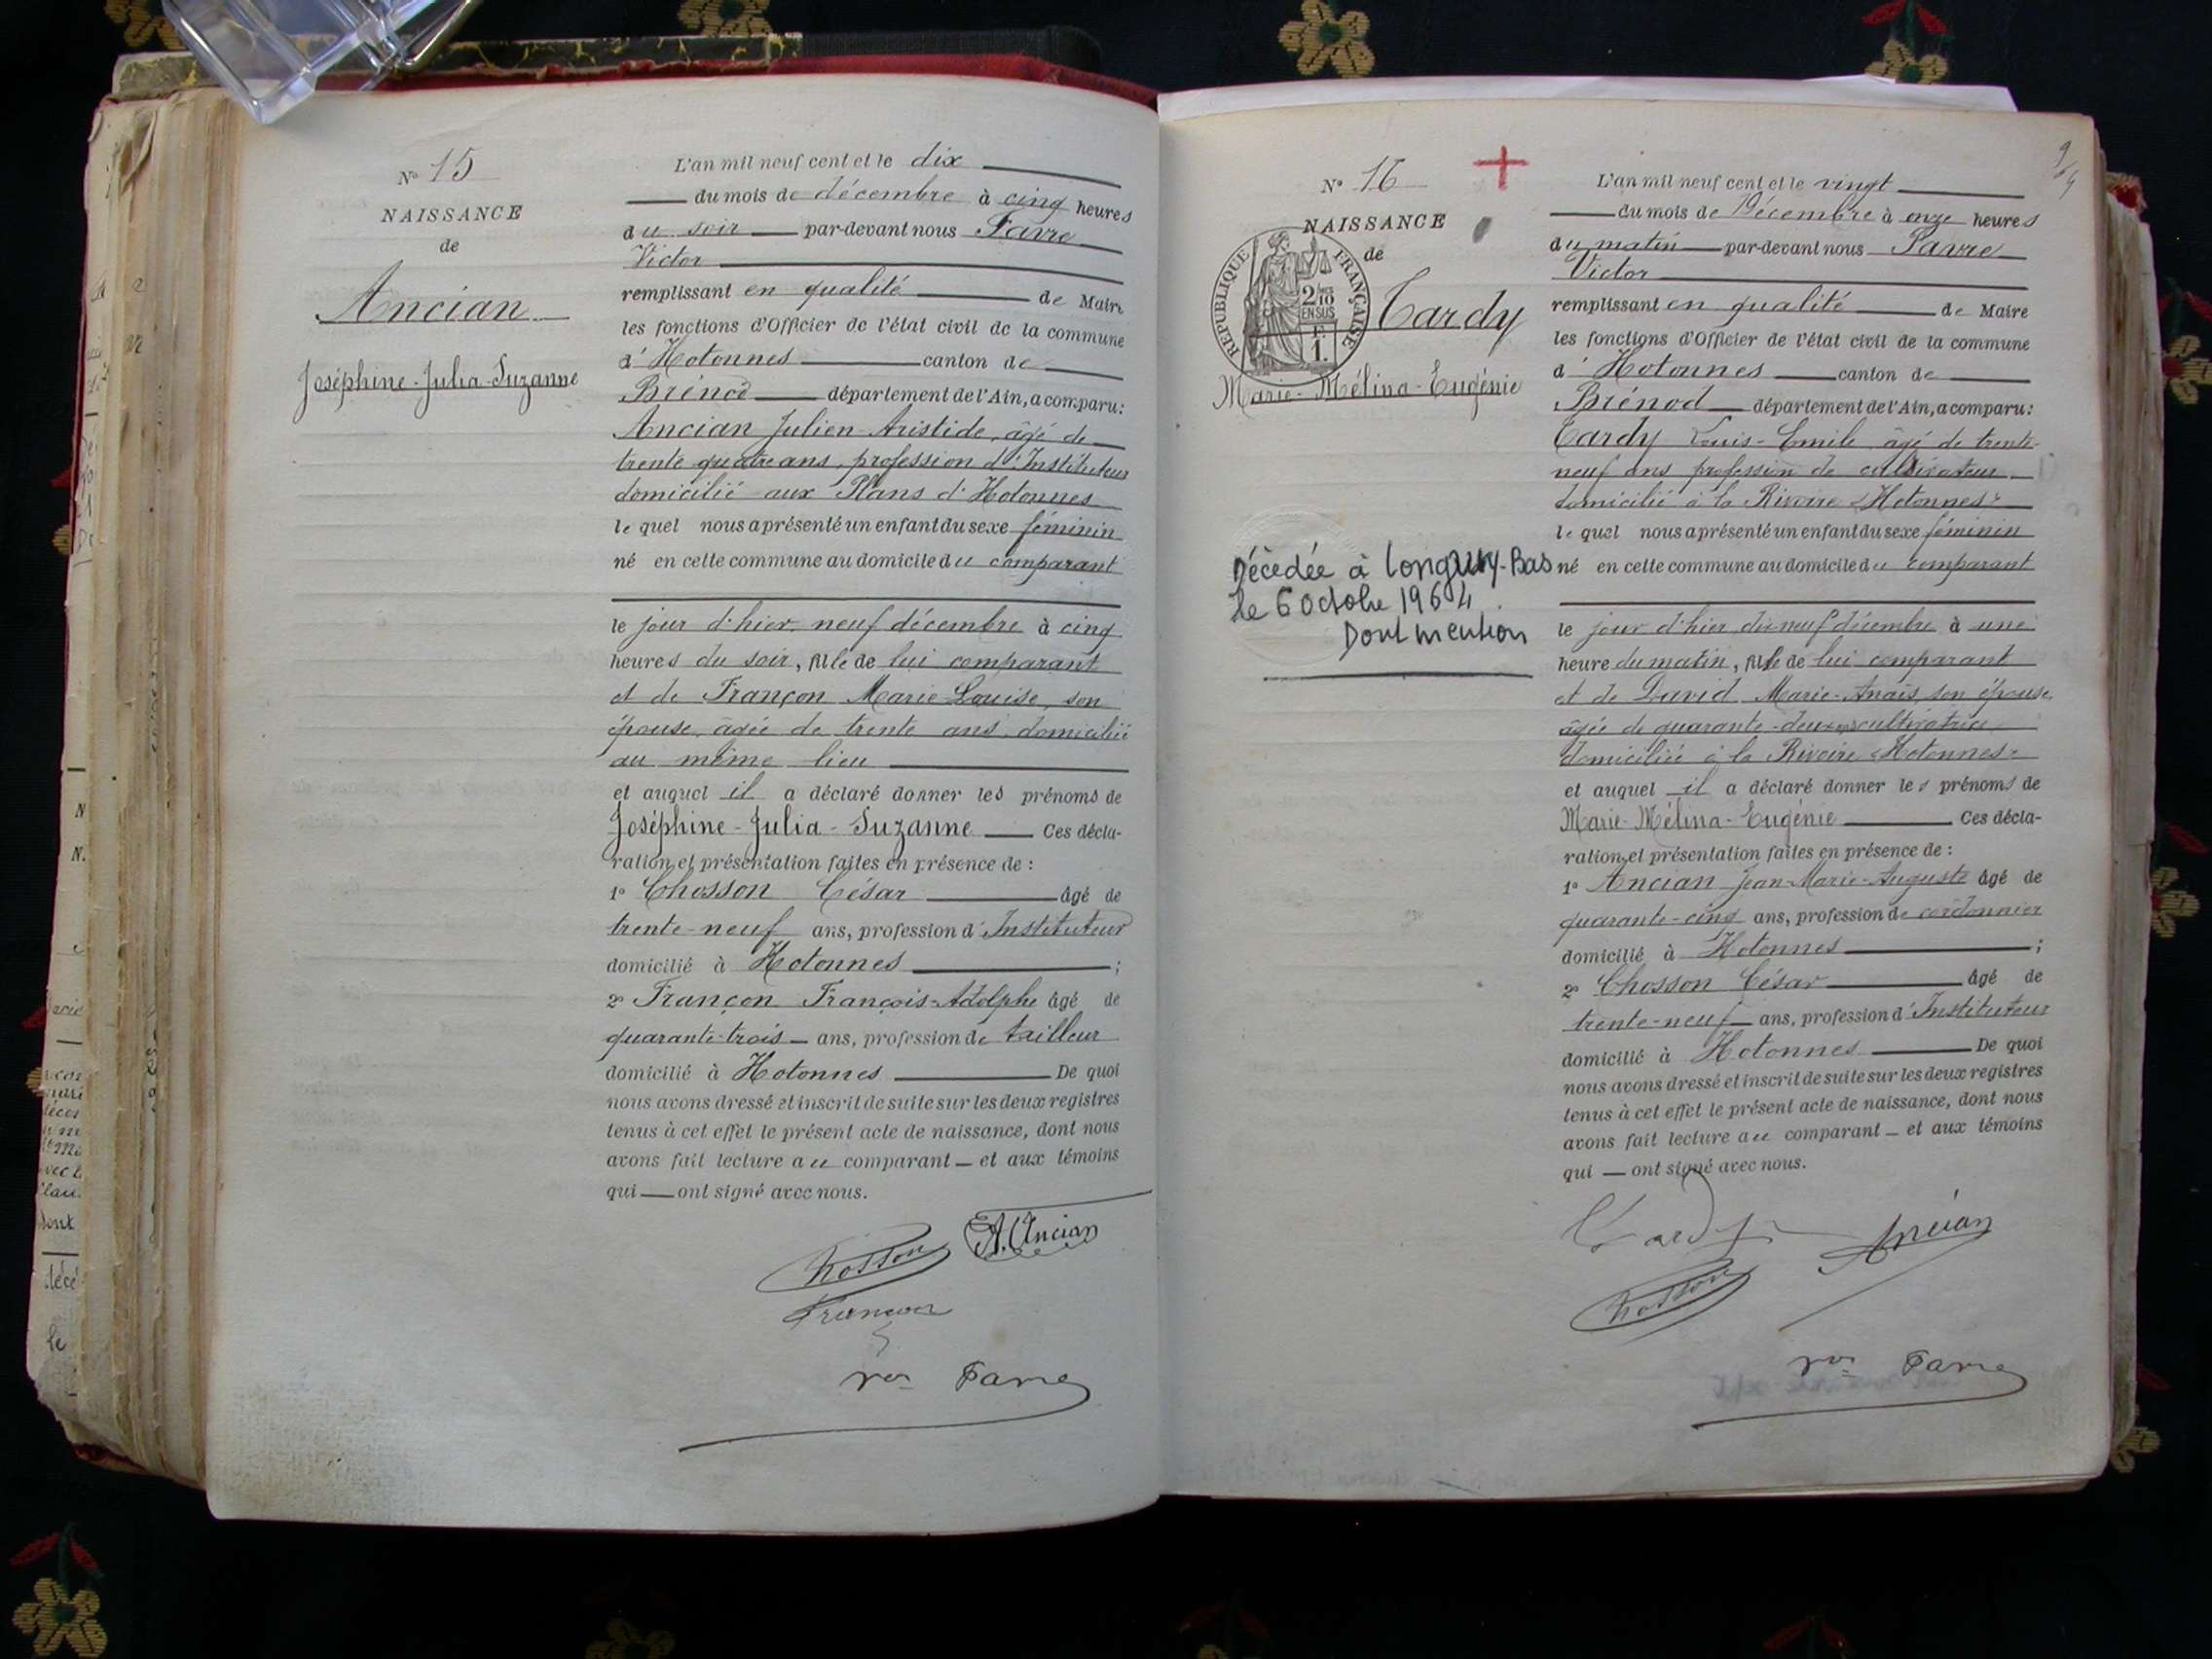 N° 15
NAISSANCE
de
Ancian
Joséphine-Julia-Suzanne
L'an mil neuf cent et le dix
du mois de décembre à cinq heures
du soir par-devant nous Favre
Victor
remplissant en qualité de Maire
les fonctions d'Officier de l'état civil de la commune
d'Hotonnes canton de
Brénod département de l'Ain, a comparu:
Ancian Julien-Aristide, âgé de
trente quatre ans, profession d'Instituteur
domicilié aux Plans d'Hotonnes
lequel nous a présenté un enfant du sexe féminin
né en cette commune au domicile du comparant
le jour d'hier neuf décembre à cinq
heures du soir, fille de lui comparant
et de Françon Marie Louise, son
épouse, âgée de trente ans domiciliée
au même lieu
et auquel il a déclaré donner les prénoms de
Joséphine-Julia-Suzanne Ces décla-
ration et présentation faites en présence de :
1° Chosson César âgé de
trente-neuf ans, profession d'Instituteur
domicilié à Hotonnes ;
2° Françon François-Adolphe âgé de
quarante-trois ans, profession de tailleur
domicilié à Hotonnes De quoi
nous avons dressé et inscrit de suite sur les deux registres
tenus à cet effet le présent acte de naissance, dont nous
avons fait lecture au comparant et aux témoins
qui ont signé avec nous.
A. Ancian
Chosson
Françon
Vor Favre
N° 16
NAISSANCE
de
REPUBLIQUE FRANÇAISE
2/10 EN SUS
F.
1.
Tardy
Marie-Mélina-Eugénie
Décédée à Longwy-Bas
le 6 Octobre 1964
Dont mention
L'an mil neuf cent et le vingt
du mois de Décembre à onze heures
du matin par-devant nous Favre
Victor
remplissant en qualité de Maire
les fonctions d'Officier de l'état civil de la commune
d'Hotonnes canton de
Brénod département de l'Ain, a comparu:
Tardy Louis-Emile âgé de trente-
neuf ans profession de cultivateur
domicilié à la Rivoire "Hotonnes"
lequel nous a présenté un enfant du sexe féminin
né en cette commune au domicile du comparant
le jour d'hier dix neuf décembre à une
heure du matin, fille de lui comparant
et de David Marie-Anaïs, son épouse,
âgée de quarante-deux ans cultivatrice
domiciliée à la Rivoire "Hotonnes"
et auquel il a déclaré donner les prénoms de
Marie-Mélina-Eugénie Ces décla-
ration et présentation faites en présence de :
1° Ancian Jean-Marie-Auguste âgé de
quarante-cinq ans, profession de cordonnier
domicilié à Hotonnes ;
2° Chosson César âgé de
trente-neuf ans, profession d'Instituteur
domicilié à Hotonnes De quoi
nous avons dressé et inscrit de suite sur les deux registres
tenus à cet effet le présent acte de naissance, dont nous
avons fait lecture au comparant et aux témoins
qui ont signé avec nous.
Tardy
Ancian
Chosson
Vor Favre